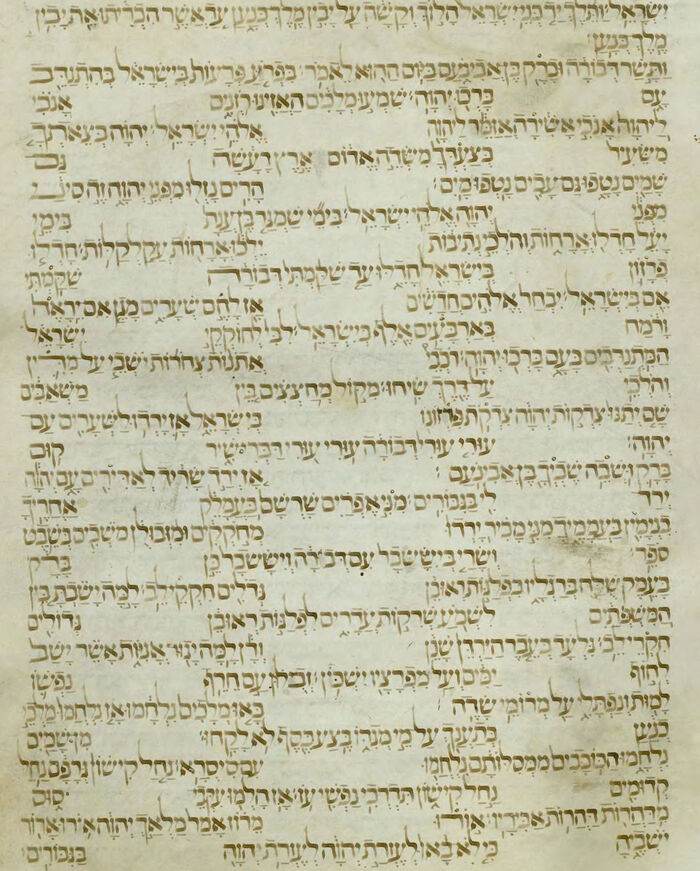 ישראל ותלך יד בני ישראל הלוך וקשה על יבין מלך כנען עד אשר הכריתו את יבין
מלך כנען׃
ותשר דבורה וברק בן אבינעם ביום ההוא לאמר׃ בפרע פרעות בישראל בהתנדב
עם ברכו יהוה׃ שמעו מלכים האזינו רזנים אנכי
ליהוה אנכי אשירה אזמר ליהוה אלהי ישראל׃ יהוה בצאתך
משעיר בצעדך משדה אדום ארץ רעשה גם
שמים נטפו גם עבים נטפו מים׃ הרים נזלו מפני יהוה זה סיני
מפני יהוה אלהי ישראל׃ בימי שמגר בן ענת בימי
יעל חדלו ארחות והלכי נתיבות ילכו ארחות עקלקלות׃ חדלו
פרזון בישראל חדלו עד שקמתי דבורה שקמתי
אם בישראל׃ יבחר אלהים חדשים אז לחם שערים מגן אם יראה
ורמח בארבעים אלף בישראל׃ לבי לחוקקי ישראל
המתנדבים בעם ברכו יהוה׃ רכבי אתנות צחרות ישבי על מדין
והלכי על דרך שיחו׃ מקול מחצצים בין משאבים
שם יתנו צדקות יהוה צדקת פרזונו בישראל אז ירדו לשערים עם
יהוה׃ עורי עורי דבורה עורי עורי דברי שיר קום
ברק ושבה שביך בן אבינעם׃ אז ירד שריד לאדירים עם יהוה
ירד לי בגבורים׃ מני אפרים שרשם בעמלק אחריך
בנימין בעממיך מני מכיר ירדו מחקקים ומזבולן משכים בשבט
ספר׃ ושרי ביששכר עם דבורה ויששכר כן ברק
בעמק שלח ברגליו בפלגות ראובן גדלים חקקי לב׃ למה ישבת בין
המשפתים לשמע שרקות עדרים לפלגות ראובן גדולים
חקרי לב׃ גלעד בעבר הירדן שכן ודן למה יגור אניות אשר ישב
לחוף ימים ועל מפרציו ישכון׃ זבלון עם חרף נפשו
למות ונפתלי על מרומי שדה׃ באו מלכים נלחמו אז נלחמו מלכי
כנען בתענך על מי מגדו בצע כסף לא לקחו׃ מן שמים
נלחמו הכוכבים ממסלותם נלחמו עם סיסרא׃ נחל קישון גרפם נחל
קדומים נחל קישון תדרכי נפשי עז׃ אז הלמו עקבי סוס
מדהרות דהרות אביריו׃ אורו מרוז אמר מלאך יהוה ארו ארור
ישביה כי לא באו לעזרת יהוה לעזרת יהוה בגבורים׃